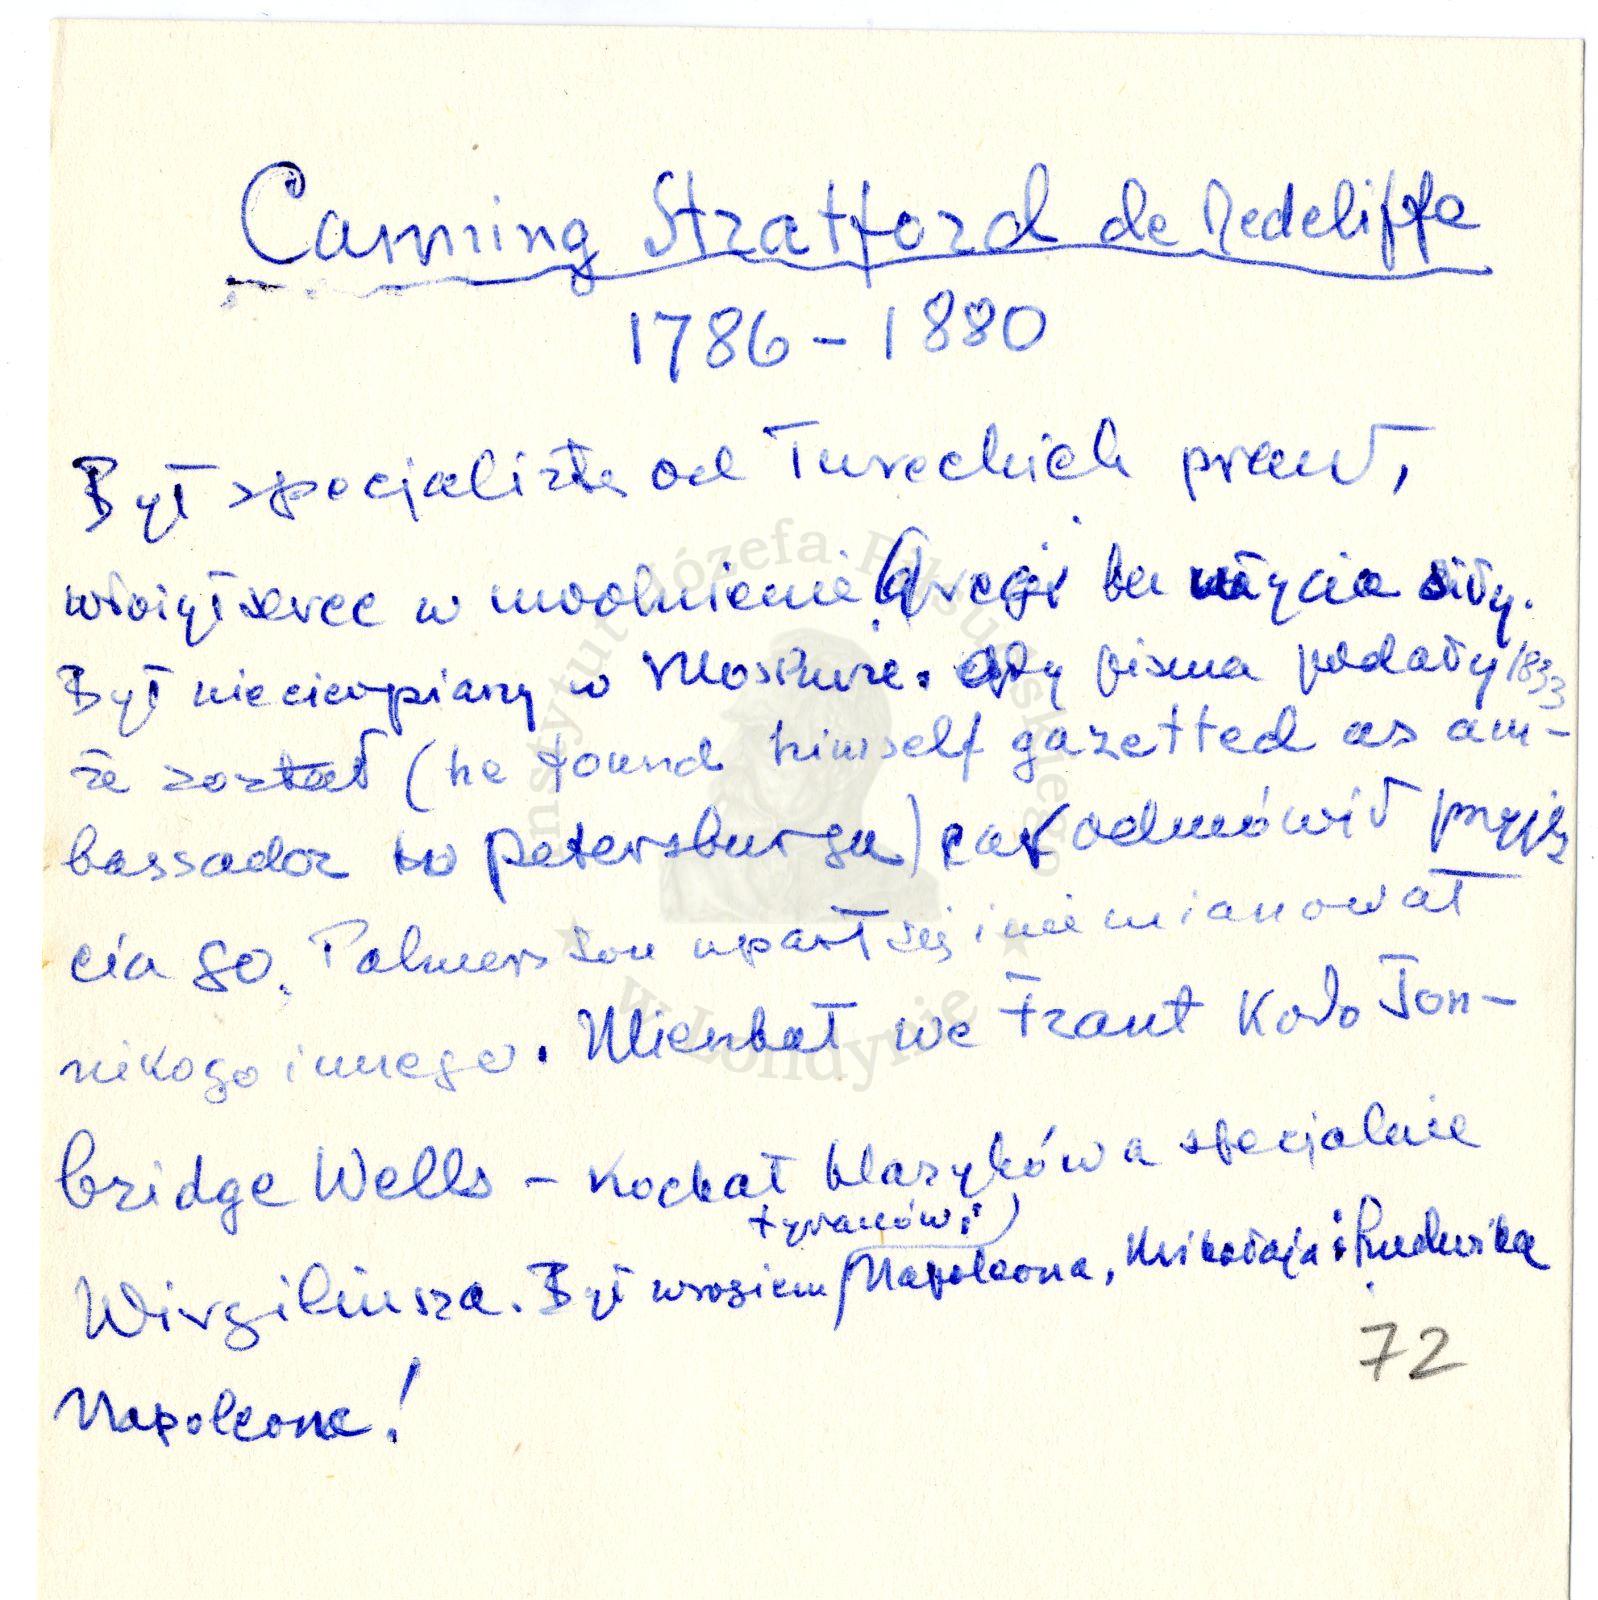 Canning Stratford de Redcliffe
1786 – 1880
Był specjalistą od Tureckich praw,
włożył serce w uwolnienie Grecji bez użycia siły.
Był niecierpiany w Moskwie. Gdy pisma podały 1833
że został (he found himself gazetted as am-
bassador to Petersburga) car odmówił przyję
cia go. Palmerston uparł się i nie mianował
nikogo innego. Mieszkał we Frant koło Ton-
bridge Wells – kochał klasyków a specjalnie
tyranów:
Wirgiliusza. Był wrogiem Napoleona, Mikołaja i Ludwika
Napoleona!
72
Instytut Józefa Piłsudskiego
w Londynie